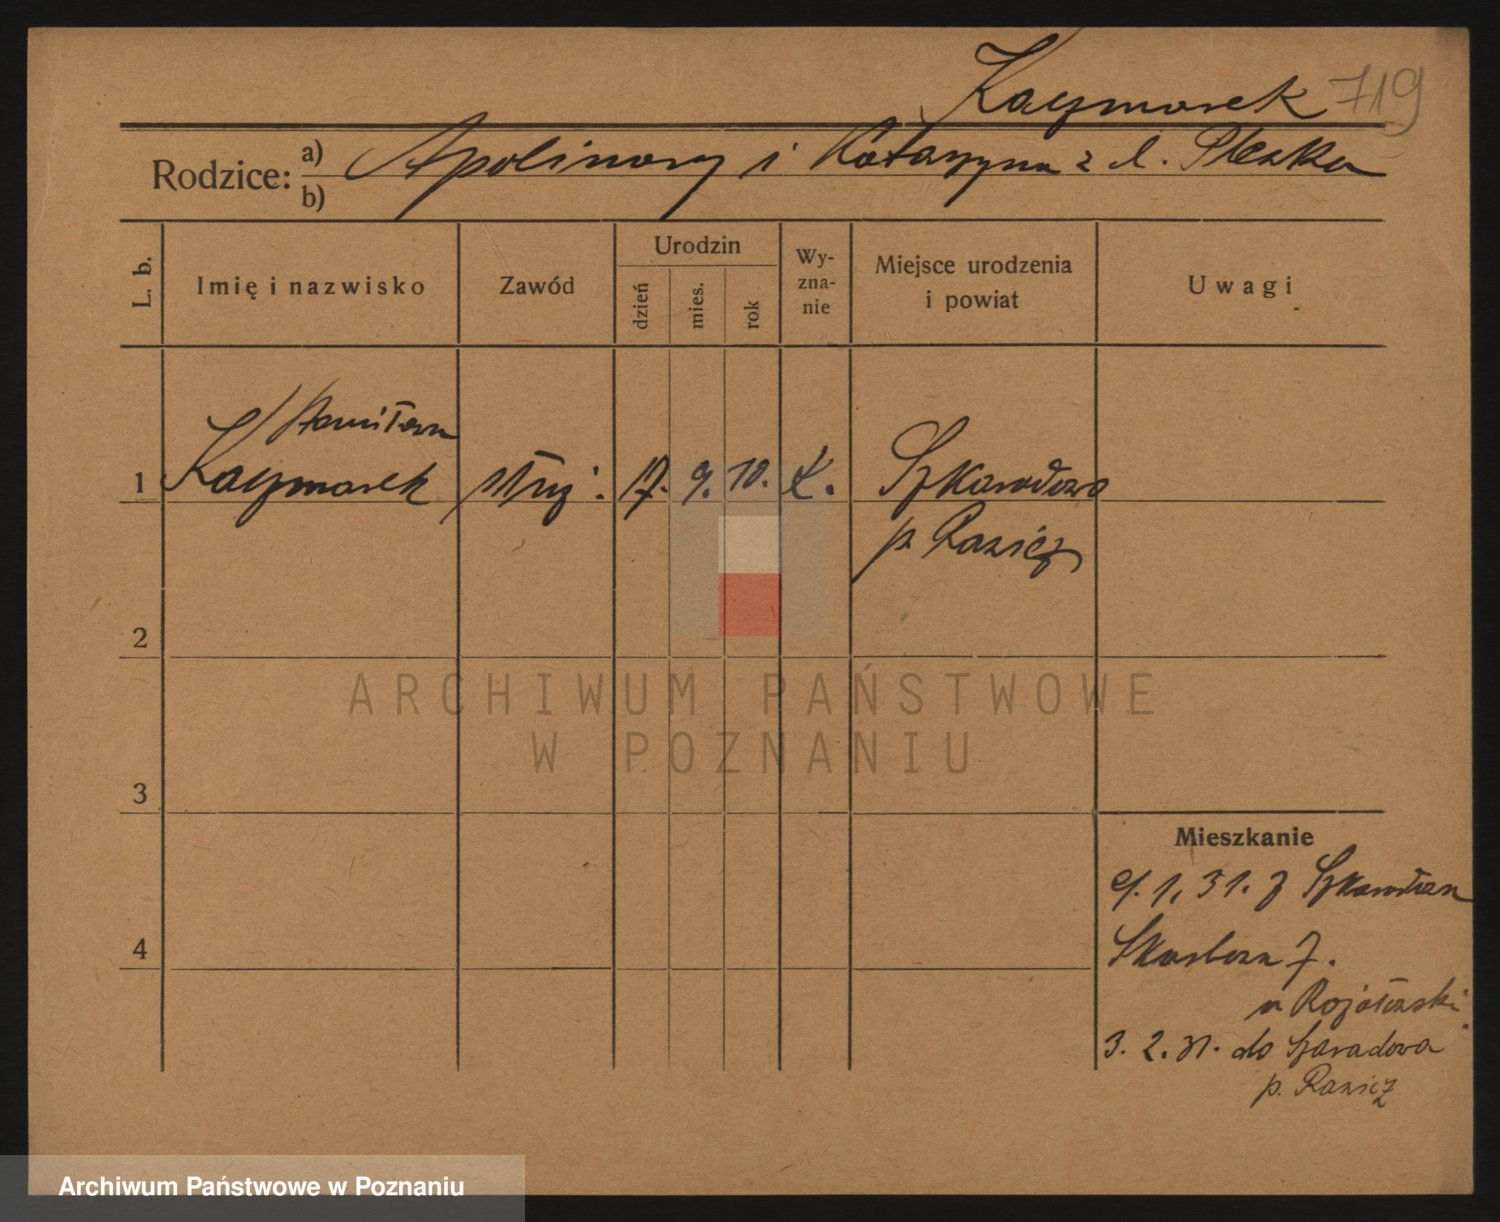 Kaczmarek 719
Rodzice: a) Apolinary i Katarzyna z d. Pleszka
b)
L. b.
Imię i nazwisko
Zawód
Urodzin
dzień
mies.
rok
Wy-
zna-
nie
Miejsce urodzenia
i powiat
Uwagi
Stanisława
1 Kaczmarek 17. 9. 10. k. Szkaradowo
p. Rawicz
2
ARCHIWUM PAŃSTWOWE
W POZNANIU
3
Mieszkanie
1. 31. z
4
Skarbowa 7.
u
3. 2. 31. do Szkaradowa
p. Rawicz
Archiwum Państwowe w Poznaniu